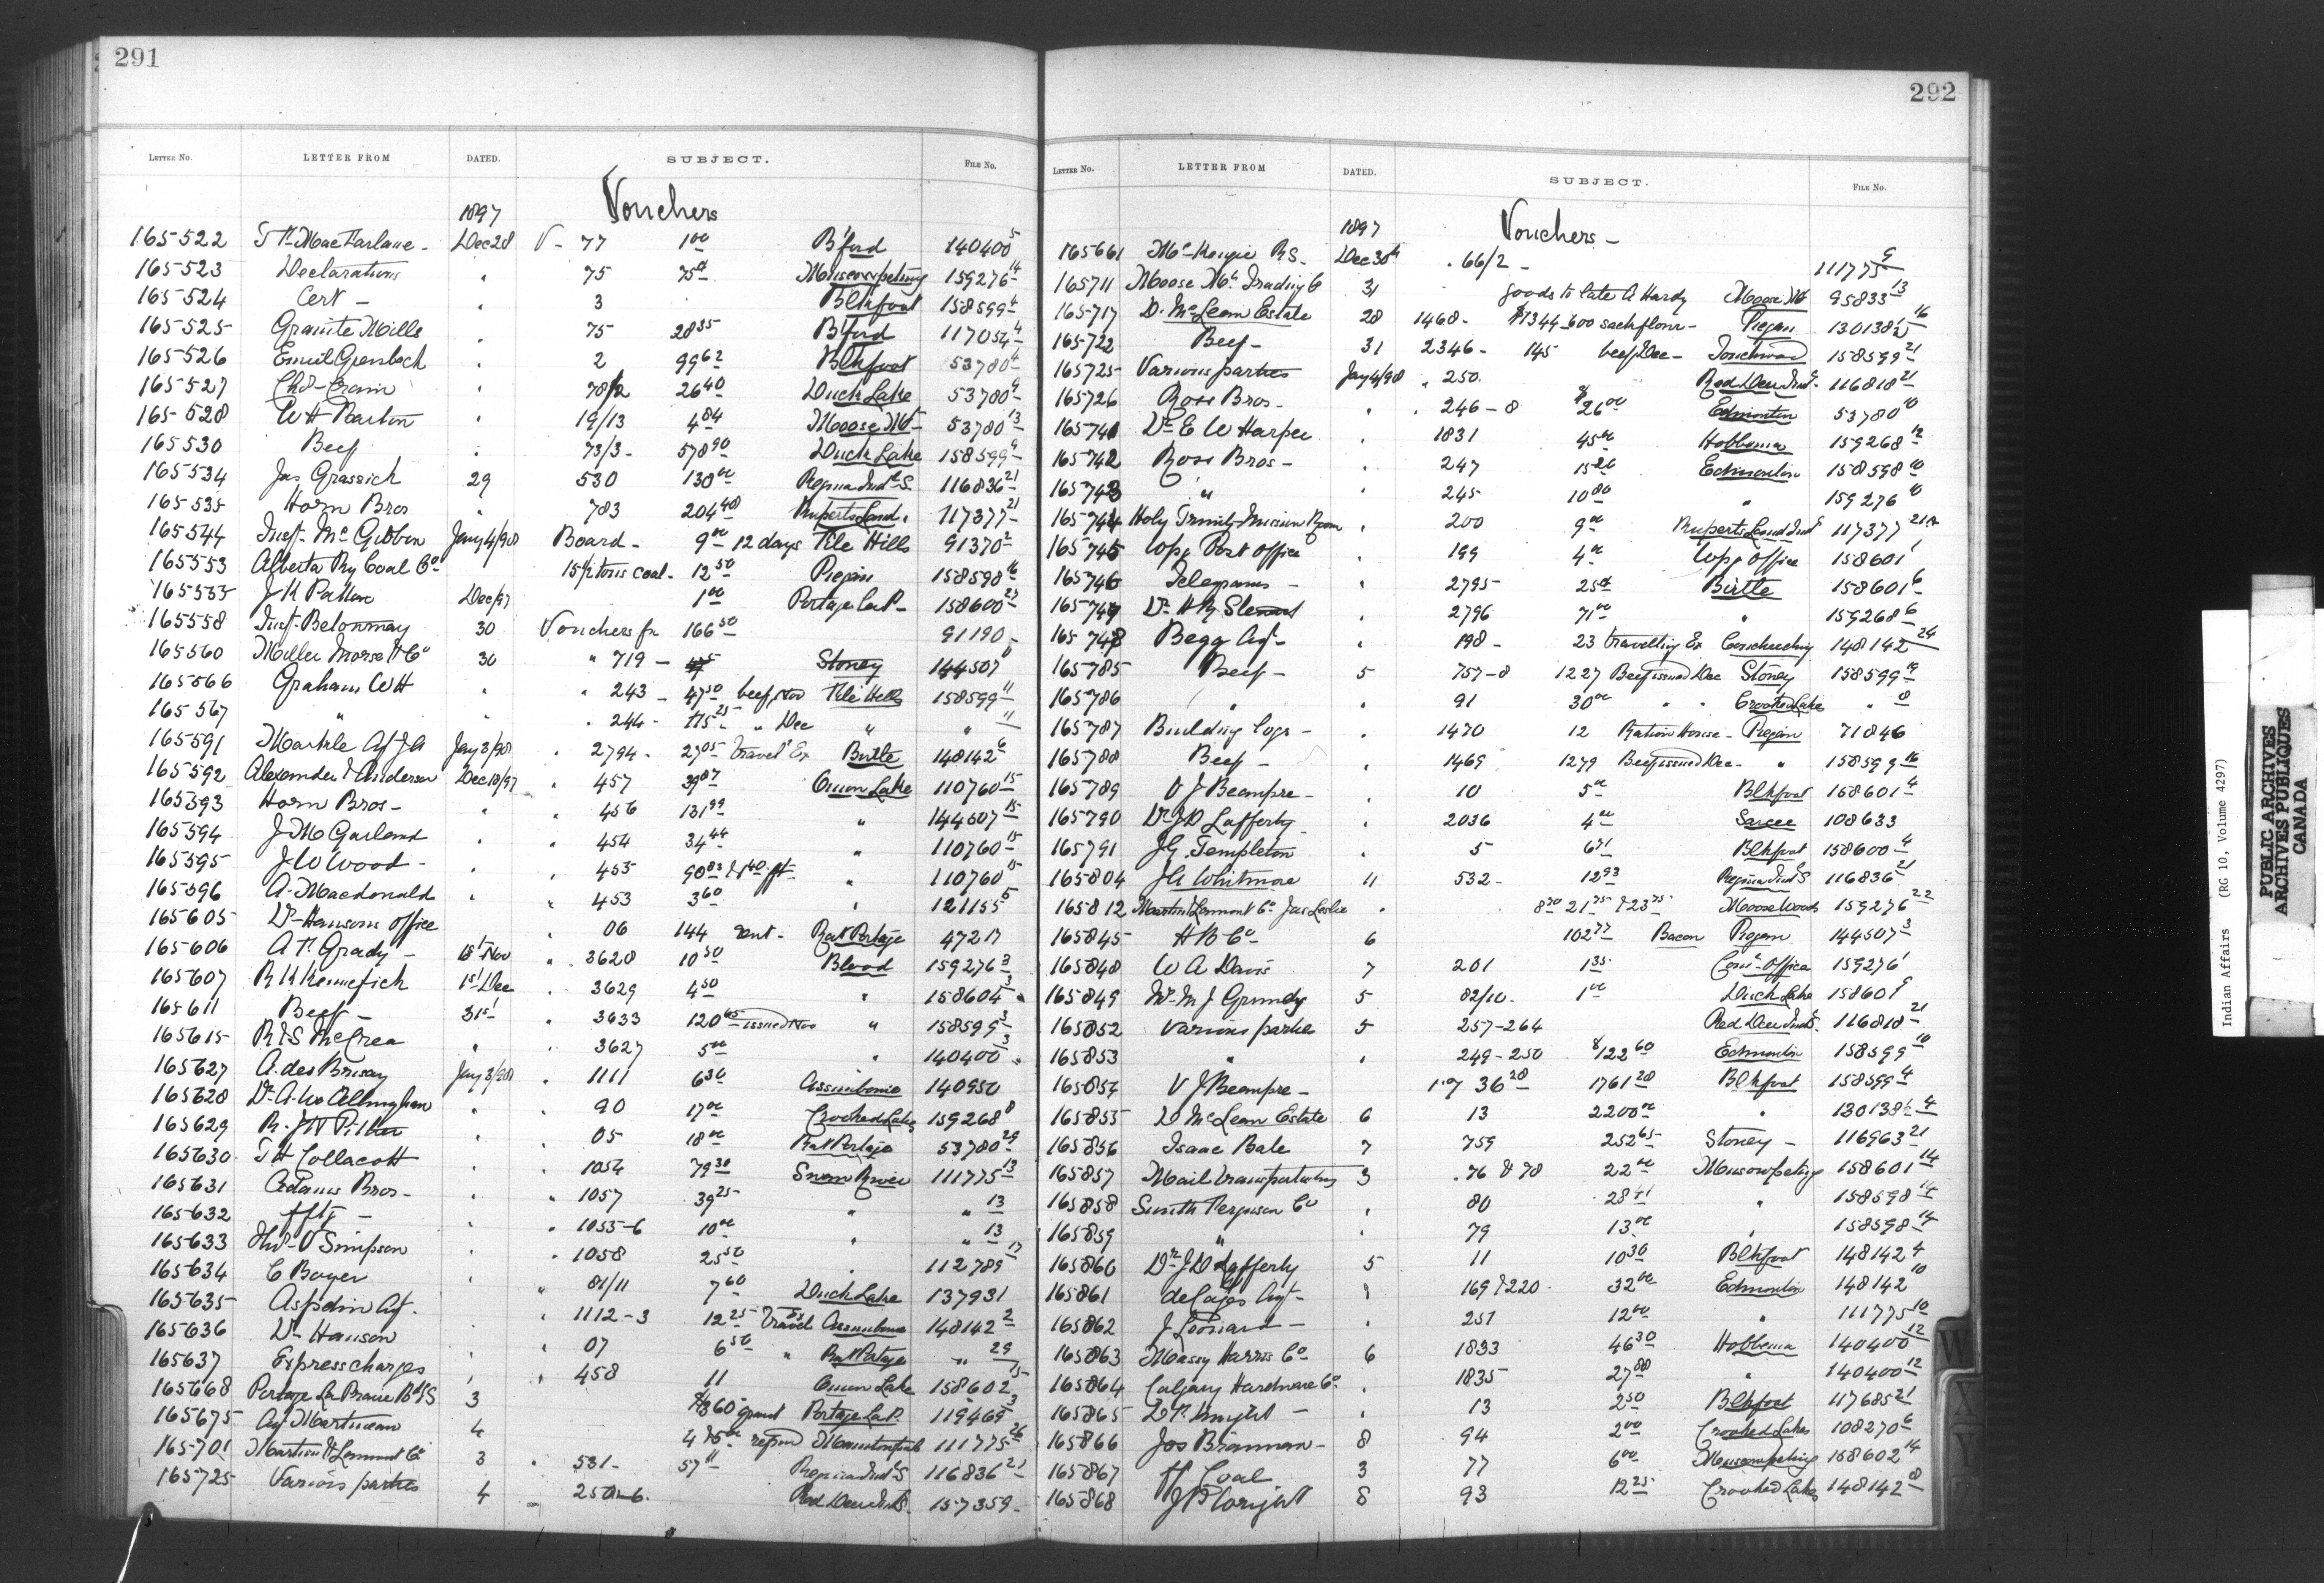 291
LETTER NO. LETTER FROM DATED. SUBJECT. FILE No.
1897 Vouchers
165522 MacFarlane - Dec 28 V - 77 1 00 B'ford 140400 5
165523 Declarations " 75 75 Muscowpetung 159276 14
165524 Cert - " 3 Blkfoot 158599 4
165525 Granite Mills " 75 28 35 B'ford 117054 4
165526 " 2 99 62 Blkfoot 53780 4
165527 " 78/2 26 40 Duck Lake 53780 9
165528 W H " 19/13 4 84 Moose Mt 53780 13
165530 Beef " 73/3 - 578 90 Duck Lake 158599 9
165534 Jas Grassick 29 530 130 00 Regina Indl S. 116836 21
165535 Horn Bros " 783 204 40 Ruperts Land 117377 21
165544 Inspr McGibbon Jany 4/98 Board - 9 00 12 days File Hills 91370 2
165553 Alberta Ry Coal Co 15½ tons coal - 12 50 Piegan 158598 16
165555 J K Patton Dec/97 1 00 Portage La P - 158600 27
165558 30 Vouchers for 166 50 91190 -
165560 Miller Morse H Co 30 " 719 - Stoney 144507
165566 Graham W H " " 243 - 47 50 beef Nov File Hills 158599 11
165567 " " " 244 - 115 25 " Dec " " 11
165591 Markle Agt J A Jany 3/98 " 2794 - 27 05 Travel Ex Birtle 148142 6
165592 Alexander & Anderson Dec 18/97 " 457 39 87 Onion Lake 110760 15
165593 Horn Bros - " " 456 131 99 " 144507 15
165594 J M Garland " " 454 34 44 " 110760 15
165595 J W Wood - " " 455 90 83 " 110760 15
165596 A. Macdonald " " 453 3 60 " 121155
165605 Dr Hansons Office 06 144 rent - Rat Portage 47217
165606 Grady - 15 Nov " 3628 10 50 Blood 159276 3
165607 R K Kennefick 1st Dec " 3629 4 50 " 158604 3
165611 Beef - 31st " 3633 120 65 issued Nov " 158599 3
165615 R & S McCrea " " 3627 5 00 " 140400 3
165627 A. des Brisay Jany 3/98 " 1111 6 30 Assiniboine 140950
165628 Dr A. W. Allingham " " 90 17 00 Crooked Lakes 159268 8
165629 R. J N Pither " " 05 18 00 Rat Portage 53780 29
165630 T H Collacott " " 1054 79 30 Swan River 111775 13
165631 Adams Bros - " " 1057 39 25 " " 13
165632 " " 1055-6 10 00 " " 13
165633 Simpson " " 1058 25 50 " 112789 13
165634 C Boyer " " 81/11 7 60 Duck Lake 137931
165635 Aspdin Agt. " " 1112-3 12 25 Travel Ex Assiniboine 148142 2
165636 Dr Hanson " " 07 6 50 " Rat Portage " 29
165637 Express charges " " 458 11 Onion Lake 158602 15
165668 Portage La Prairie B d S 3 $360 grant Portage La P. 119469 3
165675 Agt Martineau 4 refund 111775 26
165701 Martin & Lemont Co 3 " 531 - 57 11 Regina Indl S 116836 21
165725 Various parties 4 Red Deer Indl S. 157359 -
292
LETTER NO. LETTER FROM DATED. SUBJECT. FILE No.
1897 Vouchers -
165661 McKenzie R S. Dec 30th . 66/2 - 111775 9
165711 Moose Mt. Trading Co 31 goods to late A Hardy Moose Mt 95833 13
165717 D. McLean Estate 28 1468 - $1344 - 600 sacks flour - Piegan 130138½ 16
165722 Beef - 31 2346 - 145 beef Dec - Touchwood 158599 21
165725 Various parties Jany 4/98 " 250. Red Deer Indl. 116818 21
165726 Rose Bros - " " 246-8 $26 00 Edmonton 53780 10
165741 Dr E W Harper " 1831 45 00 Hobbema 159268 12
165742 Rose Bros - " 247 15 20 Edmonton 158598 10
165743 " " 245 10 80 " 159276 10
165744 Holy Trinity Mission Room " 200 9 00 Ruperts Land Indl 117377 21
165745 Wpg Post Office " 199 4 00 Wpg Office 158601 1
165746 Telegrams - " 2795 25 Birtle 158601 6
165747 Dr H Stewart " 2796 71 00 " 159268 6
165748 Begg Agt - " 198 - 23 travelling Ex Couchiching 148142 24
165785 Beef - 5 757-8 1227 Beef issued Dec Stoney 158599 19
165786 " " 91 30 00 " " Crooked Lake " 8
165787 Building logs - " 1470 12 Ration House - Piegan 71846
165788 Beef - " 1469 1279 Beef issued Dec - " 158599 16
165789 V J Beaupre - " 10 5 00 Blkfoot 158601 4
165790 Dr J D Lafferty " 2036 4 00 Sarcee 108633
165791 J G Templeton " 5 6 71 Blkfoot 158600 4
165804 J G Whitmore 11 532 - 12 93 Regina Indl S 116836 21
165812 Martin & Lemont Co Jas Leslie " 8 70 21 75 & 23 75 Moose Woods 159276 22
165845 H B Co - 6 102 77 Bacon Piegan 144507 3
165848 W A Davis 7 201 1 35 Comr. Office 159276 1
165849 Mr M J Grundy 5 82/10 - 1 00 Duck Lake 158601 9
165852 Various parties 5 257-264 Red Deer Indl S. 116818 21
165853 " " 249-250 $122 60 Edmonton 158599 10
165854 V J Beaupre - 1761 28 Blkfoot 158599 4
165855 D McLean Estate 6 13 2200 00 " 130138½ 4
165856 Isaac Bate 7 759 252 65 Stoney - 116963 21
165857 Mail transportation 3 . 76 & 78 22 00 Muscowpetung 158601 14
165858 Smith Ferguson Co " 80 28 41 " 158598 14
165859 " " 79 13 00 " 158598 14
165860 Dr J D Lafferty 5 11 10 30 Blkfoot 148142 4
165861 de Cazes Agt - " 169 & 220 32 00 Edmonton 148142 10
165862 J Leonard - " 251 12 00 " 111775 10
165863 Massey Harris Co 6 1833 46 30 Hobbema 140400 12
165864 Calgary Hardware Co. " 1835 27 80 " 140400 12
165865 Knight - " 13 2 50 Blkfoot 117685 21
165866 Jos Brennan - 8 94 2 00 Crooked Lakes 108270 6
165867 Coal 3 77 6 00 Muscowpetung 158602 14
165868 J P Wright 8 93 12 25 Crooked Lakes 148142 8
Indian Affairs (RG 10, Volume 4297)
PUBLIC ARCHIVES
ARCHIVES PUBLIQUES
CANADA